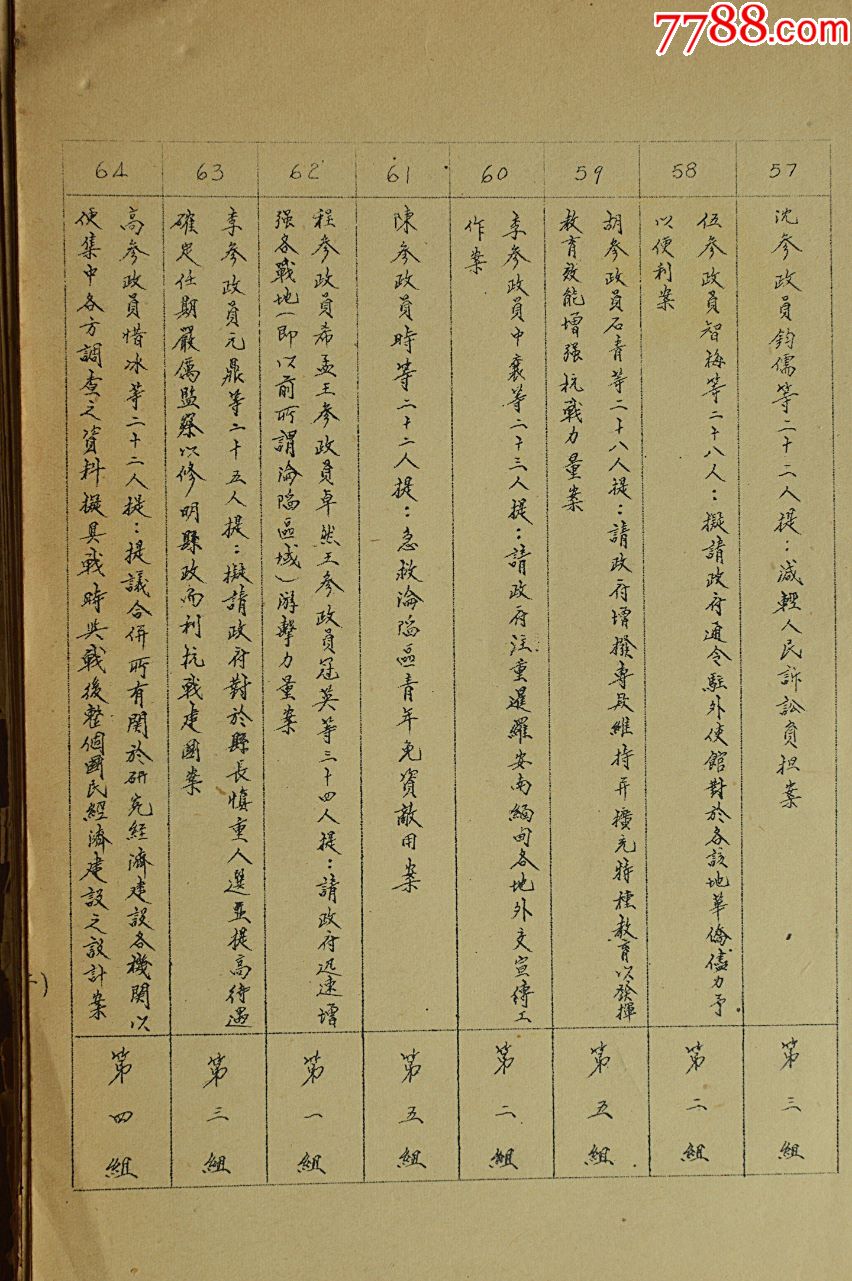 7788.com
57
沈參政員鈞儒等二十二人提：減輕人民訴訟負担案
第三組
58
伍參政員智梅等二十八人：擬請政府通令駐外使館對於各該地華僑儘力予
以便利案
第二組
59
胡參政員石青等二十八人提：請政府增撥專款維持并擴充特種教育以發揮
教育效能增强抗戰力量案
第五組
60
李參政員中襄等二十三人提：請政府注重暹羅安南緬甸各地外交宣傳工
作案
第二組
61
陳參政員時等二十二人提：急救淪陷區青年免資敵用案
第五組
62
程參政員希孟王參政員卓然王參政員冠英等三十四人提：請政府迅速增
强各戰地(即以前所謂淪陷區域)游擊力量案
第一組
63
李參政員元鼎等二十五人提：擬請政府對於縣長慎重人選並提高待遇
確定任期嚴厲監察以修明縣政而利抗戰建國案
第三組
64
高參政員惜冰等二十二人提：提議合併所有関於研究經濟建設各機関以
便集中各方調查之資料擬具戰時與戰後整個國民經濟建設之設計案
第四組